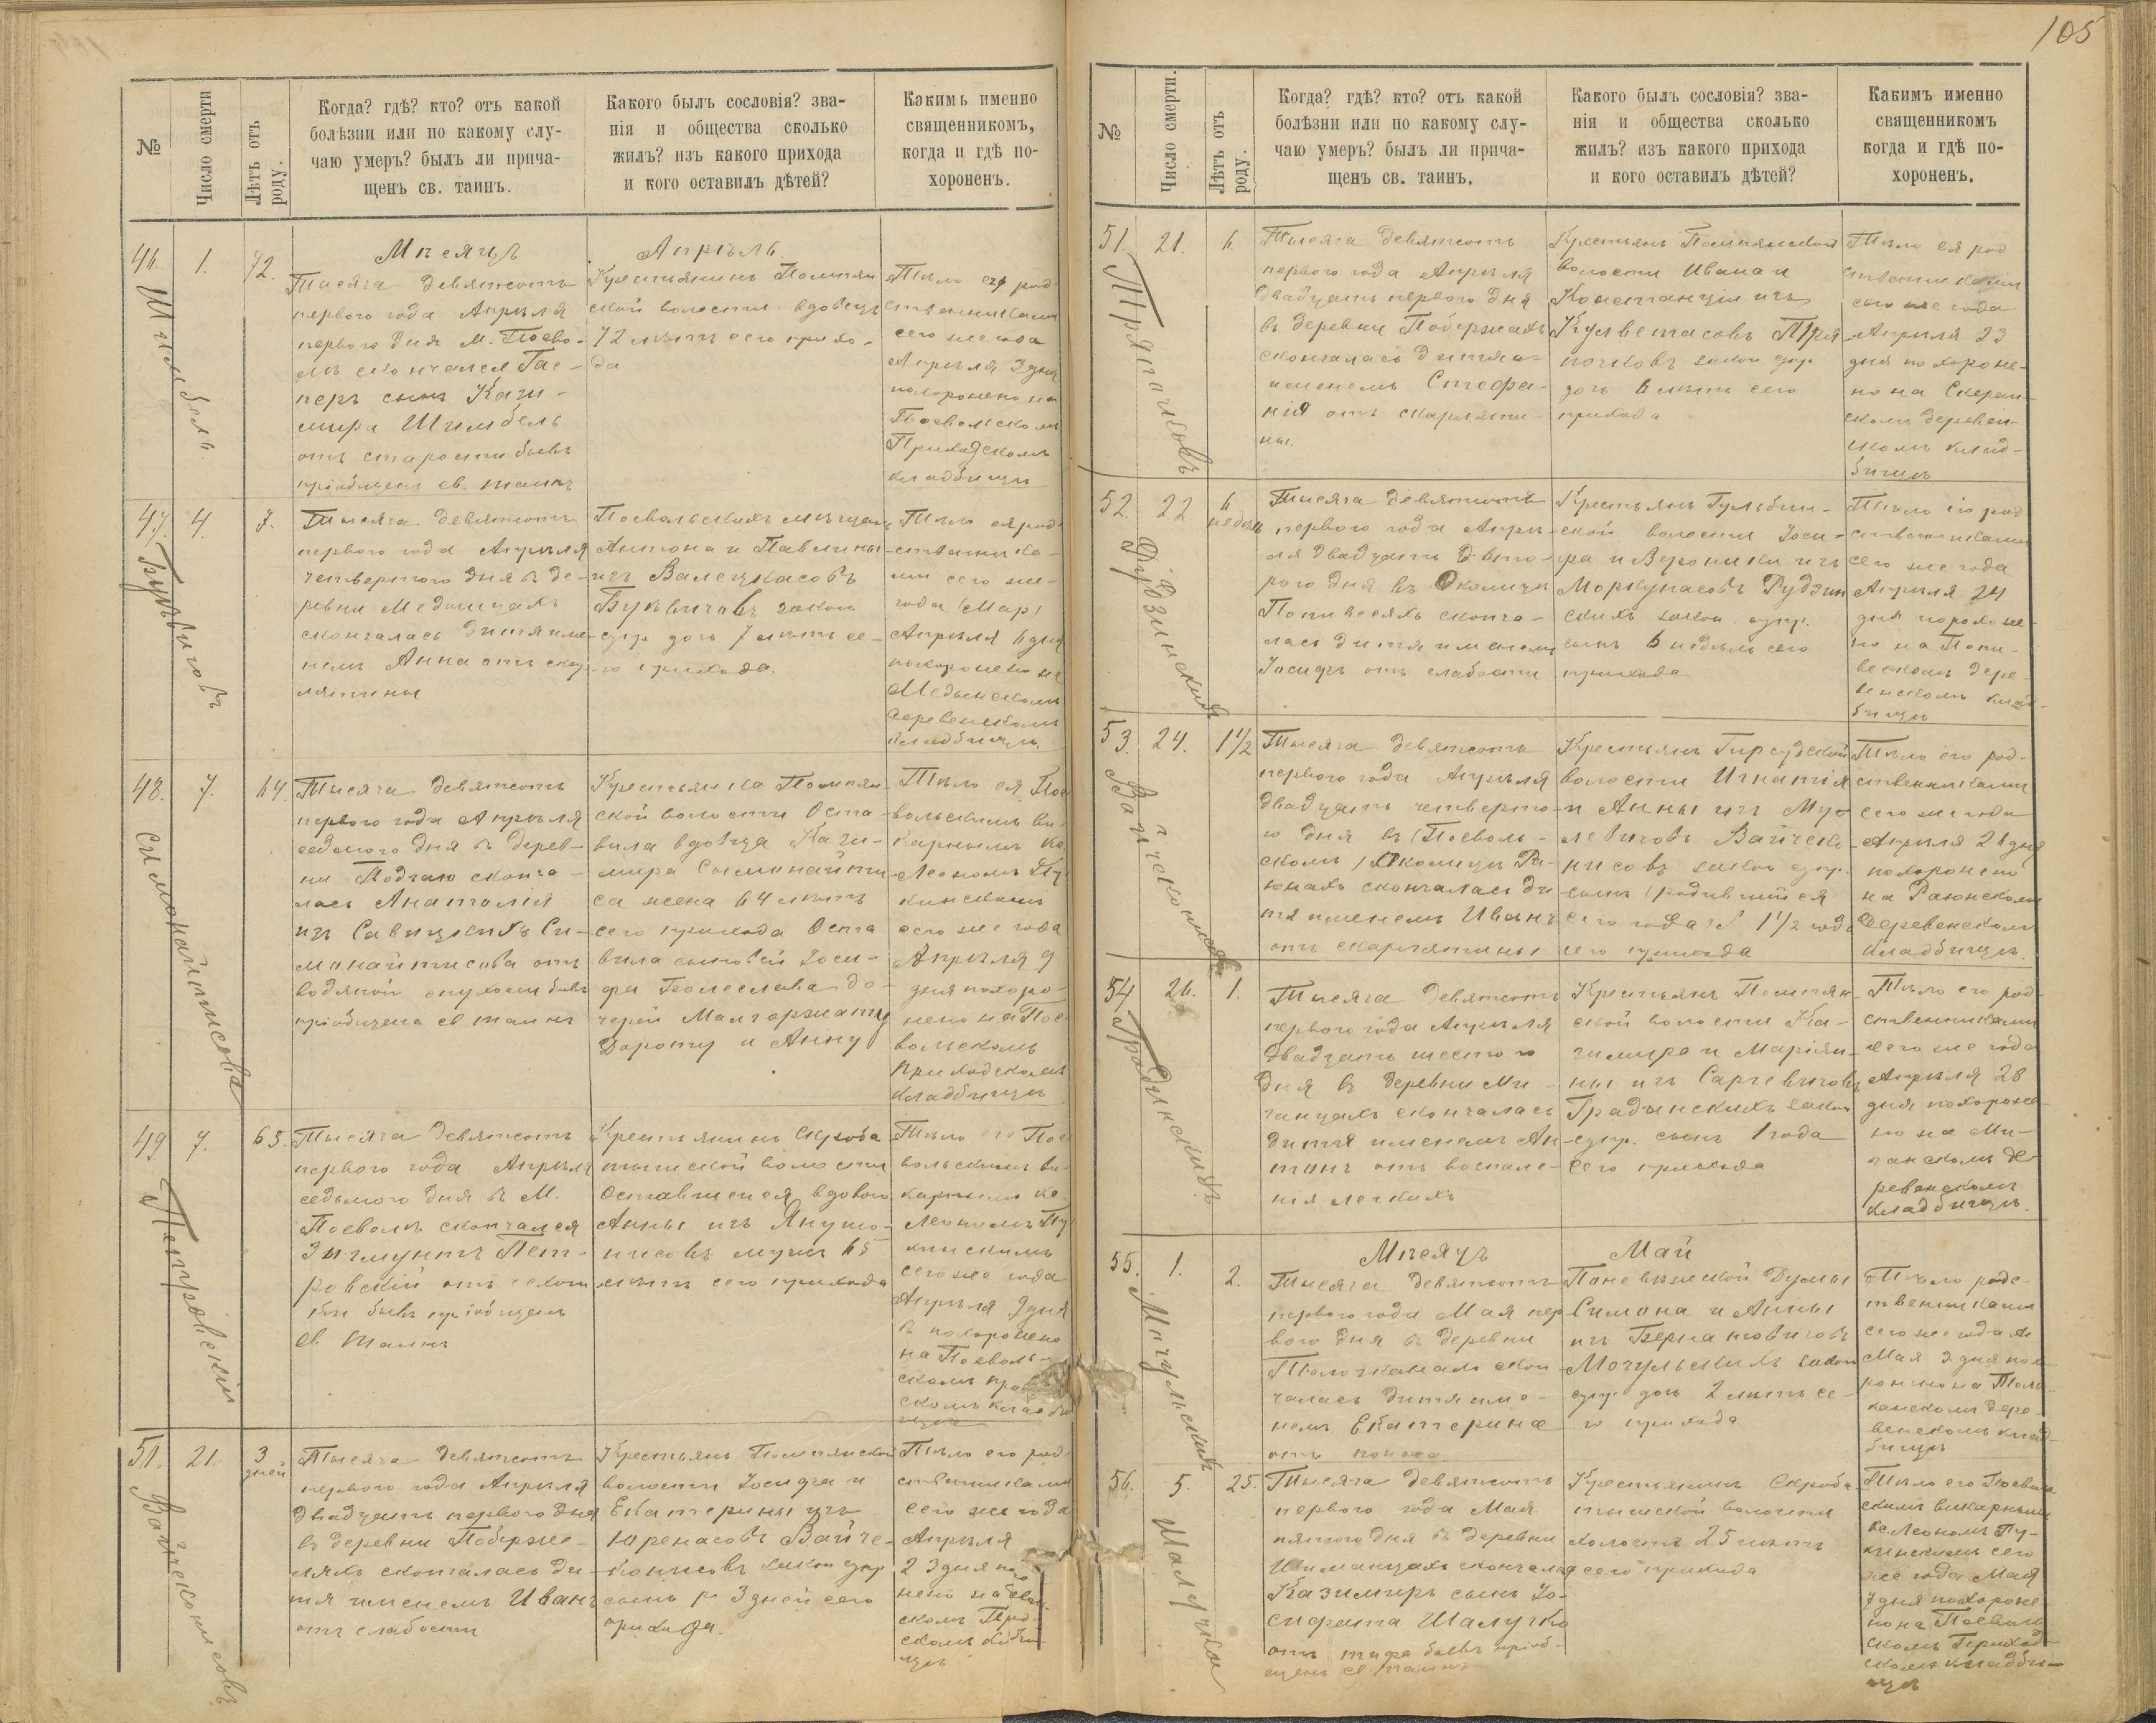 105
№
Число смерти
Лѣтъ отъ роду.
Когда? гдѣ? кто? отъ какой
болѣзни или по какому слу-
чаю умеръ? былъ ли прича-
щенъ св. таинъ.
Какого былъ сословія? зва-
нія и общества сколько
жилъ? изъ какого прихода
и кого оставилъ дѣтей?
Какимъ именно
священникомъ,
когда и гдѣ по-
хороненъ.
Мѣсяцъ Апрѣль.
46.
1.
72.
Шимбель.
Тысяча девятьсотъ
перваго года Апрѣля
перваго дня М. Посво-
лѣ скончался Гас-
перъ сынъ Кази-
мира Шимбель
отъ старости бывъ
пріобщенъ св. таинъ
Крестьянинъ Помпян
ской волости вдовецъ
72 лѣтъ сего прихо-
да
Тѣло его род
ственниками
сего же года
Апрѣля 3 дня
похоронено на
Посвольскомъ
Приходскомъ
кладбищѣ
47.
4.
7.
Тысяча девятьсотъ
перваго года Апрѣля
четвертаго дня въ де-
ревни
скончалась дитя име-
немъ Анна отъ скар
лятины
Посвольскихъ мѣщанъ
Антона и Павлины
изъ Валецкасовъ
закон
супр. дочь 7 лѣтъ се-
го прихода.
Тѣло ея род
ственника-
ми сего же
года (Мар)
Апрѣля 6 дня
похоронено на
деревенскомъ
кладбищѣ.
48.
7.
64.
Симонайтисова
Тысяча девятьсотъ
перваго года Апрѣля
седьмого дня въ дерев-
ни сконча-
лась Анатолія
изъ Савицкихъ Си-
монайтисова отъ
водяной опухоли бывъ
пріобщена св таинъ
Крестьянка Помпян-
ской волости Оста-
вила вдовца Кази-
мира Симонайти-
са жена 64 лѣтъ
сего прихода Оста
вила сыновей Іоси-
фа Болеслава до-
черей Малгоржату
Дороту и Анну
Тѣло ея Пос
вольскимъ ви-
карнымъ Кс.
Леономъ Пу
кинскимъ
сего же года
Апрѣля 9
дня похоро-
нено на Пос
вольскомъ
Приходскомъ
кладбищѣ
49.
7.
65.
Петровскій
Тысяча девятьсотъ
перваго года Апрѣля
седьмого дня въ М.
Посволѣ скончался
Зыгмунтъ Пет-
ровскій отъ чахот
ки бывъ пріобщенъ
св таинъ
Крестьянинъ Скроба
тышской волости
Оставшейся вдового
Анны изъ Янушо-
нисовъ мужъ 65
лѣтъ сего прихода
Тѣло его Пос
вольскимъ ви-
карнымъ кс.
Леономъ Пу
кинскимъ
сего же года
Апрѣля 9 дня
похоронено
на Посволь-
скомъ
скомъ кладби
щѣ
51.
21.
3 дней
Вайчеконисовъ
Тысяча девятьсотъ
перваго года Апрѣля
двадцать перваго дня
въ деревни Поберже-
ляхъ скончалась ди
тя именемъ Иванъ
отъ слабости
Крестьянъ Помпянской
волости Іосифа и
Екатерины изъ
Юренасовъ Вайче-
конисовъ закон супр
сынъ 3 дней сего
прихода.
Тѣло его род
ственниками
сего же года
Апрѣля
23 дня
нено на
скомъ
скомъ
щѣ
№
Число смерти.
Лѣтъ отъ роду.
Когда? гдѣ? кто? отъ какой
болѣзни или по какому слу-
чаю умеръ? былъ ли прича-
щенъ св. таинъ.
Какого былъ сословія? зва-
нія и общества сколько
жилъ? изъ какого прихода
и кого оставилъ дѣтей?
Какимъ именно
священникомъ
когда и гдѣ по-
хороненъ.
51.
21.
6
Тысяча девятьсотъ
перваго года Апрѣля
двадцать перваго дня
въ деревни
скончалась дитя
именемъ Стефа-
нія отъ скарляти-
ны.
Крестьянъ Помпянской
волости Ивана и
Констанціи изъ
закон супр
дочь 6 лѣтъ сего
прихода
Тѣло ея род
ственниками
сего же года
Апрѣля 23
дня похороне-
но на
скомъ деревен-
скомъ клад-
бищѣ
52.
22
6 недѣль
Тысяча девятьсотъ
перваго года Апрѣ-
ля двадцать вто-
рого дня въ Околицы
сконча-
лась дитя именемъ
Іосифъ отъ слабости
Крестьянъ Гульбин-
ской волости Іоси-
фа и Вероники изъ
закон супр.
сынъ 6 недѣль сего
прихода
Тѣло его род
ственниками
сего же года
Апрѣля 24
дня похороне-
но на
дере-
венскомъ клад-
бищѣ
53.
24.
1½
Вайчеконисовъ
Тысяча девятьсотъ
перваго года Апрѣля
двадцать четверта-
го дня въ (Посволь-
скомъ) Околицы Ра-
юнахъ скончалась ди
тя именемъ Иванъ
отъ скарлятины
Крестьянъ Гирсудской
волости Игнатія
и Анны изъ
Вайчеко-
нисовъ закон супр.
сынъ (родившійся
сего года) 1½ года
сего прихода
Тѣло его род-
ственниками
сего же года
Апрѣля 26 дня
похоронено
на Раюнскомъ
деревенскомъ
кладбищѣ.
54
26.
1.
Градинскихъ
Тысяча девятьсотъ
перваго года Апрѣля
двадцать шестого
дня въ деревни Ми-
ганцахъ скончалась
дитя именемъ Ан-
тонъ отъ воспале-
нія легкихъ
Крестьянъ Помпян
ской волости Ка-
зимира и Маріян-
ны изъ
Градинскихъ закон
супр. сынъ 1 года
сего прихода
Тѣло его род-
ственниками
сего же года
Апрѣля 28
дня похороне-
но на Ми-
ганскомъ де
ревенскомъ
кладбищѣ.
Мѣсяцъ Май
55.
1.
2.
Тысяча девятьсотъ
перваго года Мая пер
вого дня въ деревни
скон-
чалась дитя име-
немъ Екатерина
отъ поноса
Паневѣжской Думы
Симона и Анны
изъ
Могульскихъ закон
супр дочь 2 лѣтъ се-
го прихода
Тѣло родс-
твенниками
сего же года
Мая 3 дня пох-
ронено на
дере-
венскомъ клад-
бищѣ
56.
5.
25.
Тысяча девятьсотъ
перваго года Мая
пятого дня въ деревни
скончался
Казимиръ сынъ Іо-
сифата
отъ тифа бывъ пріоб-
щенъ св. таинъ
Крестьянинъ Скроба
тышской волости
холостъ 25 лѣтъ
сего прихода
Тѣло его Посволь
скимъ викарнымъ
кс Леономъ Пу-
кинскимъ сего
же года Мая
7 дня похороне
но на Посволь
скомъ Приход-
скомъ кладби-
щѣ